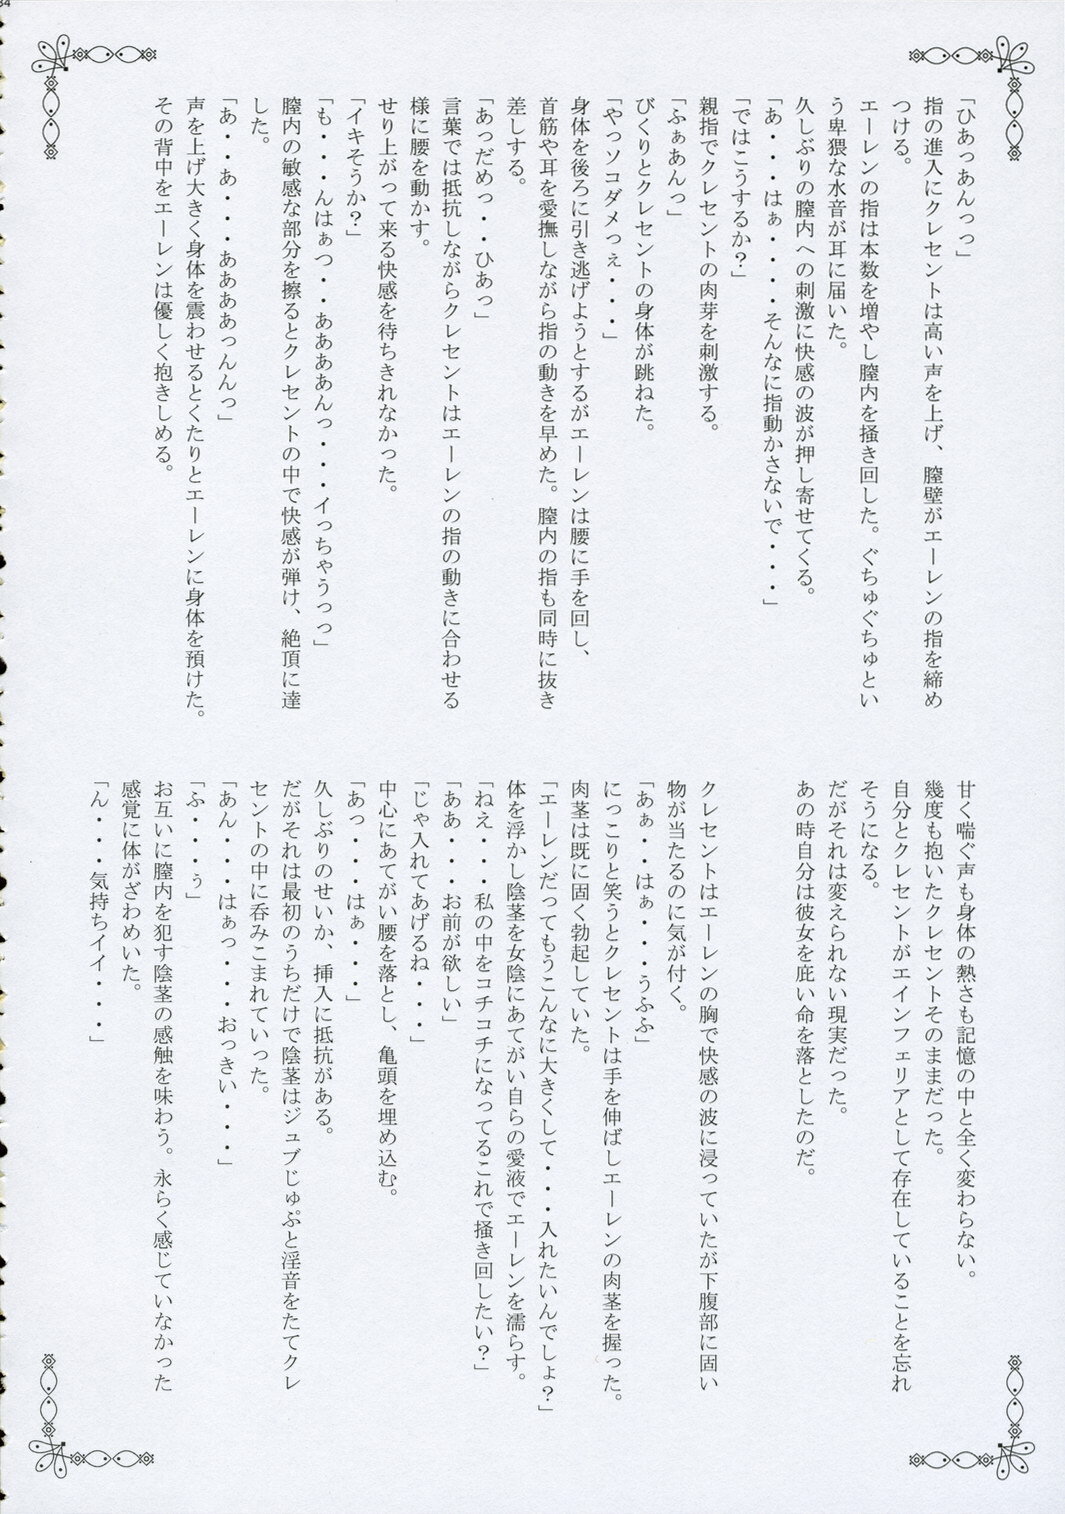 34
「ひあっあんっっ」
指の進入にクレセントは高い声を上げ、膣壁がエーレンの指を締め
つける。
エーレンの指は本数を増やし膣内を掻き回した。ぐちゅぐちゅとい
う卑猥な水音が耳に届いた。
久しぶりの膣内への刺激に快感の波が押し寄せてくる。
「あ・・・はぁ・・・・そんなに指動かさないで・・・」
「ではこうするか？」
親指でクレセントの肉芽を刺激する。
「ふぁあんっ」
びくりとクレセントの身体が跳ねた。
「やっソコダメっぇ・・・」
身体を後ろに引き逃げようとするがエーレンは腰に手を回し、
首筋や耳を愛撫しながら指の動きを早めた。膣内の指も同時に抜き
差しする。
「あっだめっ・・ひあっ」
言葉では抵抗しながらクレセントはエーレンの指の動きに合わせる
様に腰を動かす。
せり上がって来る快感を待ちきれなかった。
「イキそうか？」
「も・・・んはぁっ・・ああああんっ・・・イっちゃうっっ」
膣内の敏感な部分を擦るとクレセントの中で快感が弾け、絶頂に達
した。
「あ・・あ・・・ああああっんんっ」
声を上げ大きく身体を震わせるとくたりとエーレンに身体を預けた。
その背中をエーレンは優しく抱きしめる。
甘く喘ぐ声も身体の熱さも記憶の中と全く変わらない。
幾度も抱いたクレセントそのままだった。
自分とクレセントがエインフェリアとして存在していることを忘れ
そうになる。
だがそれは変えられない現実だった。
あの時自分は彼女を庇い命を落としたのだ。
クレセントはエーレンの胸で快感の波に浸っていたが下腹部に固い
物が当たるのに気が付く。
「あぁ・・はぁ・・・うふふ」
にっこりと笑うとクレセントは手を伸ばしエーレンの肉茎を握った。
肉茎は既に固く勃起していた。
「エーレンだってもうこんなに大きくして・・・入れたいんでしょ？」
体を浮かし陰茎を女陰にあてがい自らの愛液でエーレンを濡らす。
「ねえ・・・私の中をコチコチになってるこれで掻き回したい？」
「ああ・・・お前が欲しい」
「じゃ入れてあげるね・・・」
中心にあてがい腰を落とし、亀頭を埋め込む。
「あっ・・・はぁ・・・」
久しぶりのせいか、挿入に抵抗がある。
だがそれは最初のうちだけで陰茎はジュブじゅぷと淫音をたてクレ
セントの中に呑みこまれていった。
「あん・・・はぁっ・・・おっきい・・・」
「ふ・・・ぅ」
お互いに膣内を犯す陰茎の感触を味わう。永らく感じていなかった
感覚に体がざわめいた。
「ん・・・気持ちイイ・・・」